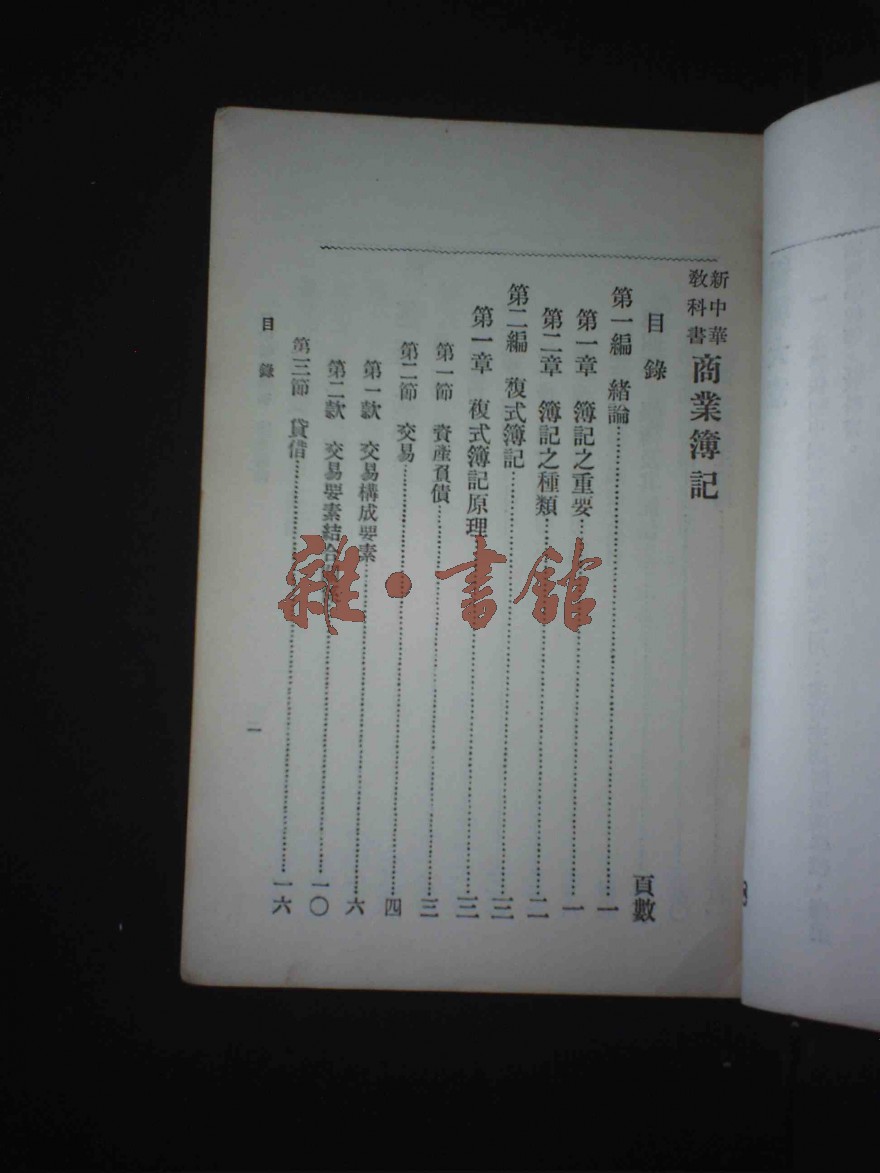 新中華
教科書
商業簿記
目錄 頁數
第一編 緒論 一
第一章 簿記之重要 一
第二章 簿記之種類 二
第二編 複式簿記 三
第一章 複式簿記原理 三
第一節 資產負債 三
第二節 交易 四
第一款 交易構成要素 六
第二款 交易要素結合 一〇
第三節 貸借 一六
目錄
一
雜·書館